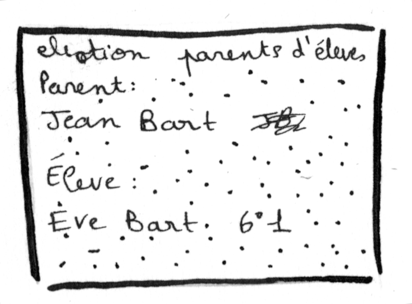 election parents d'élèves
Parent:
Jean Bart
Élève:
Ève Bart. 6°1